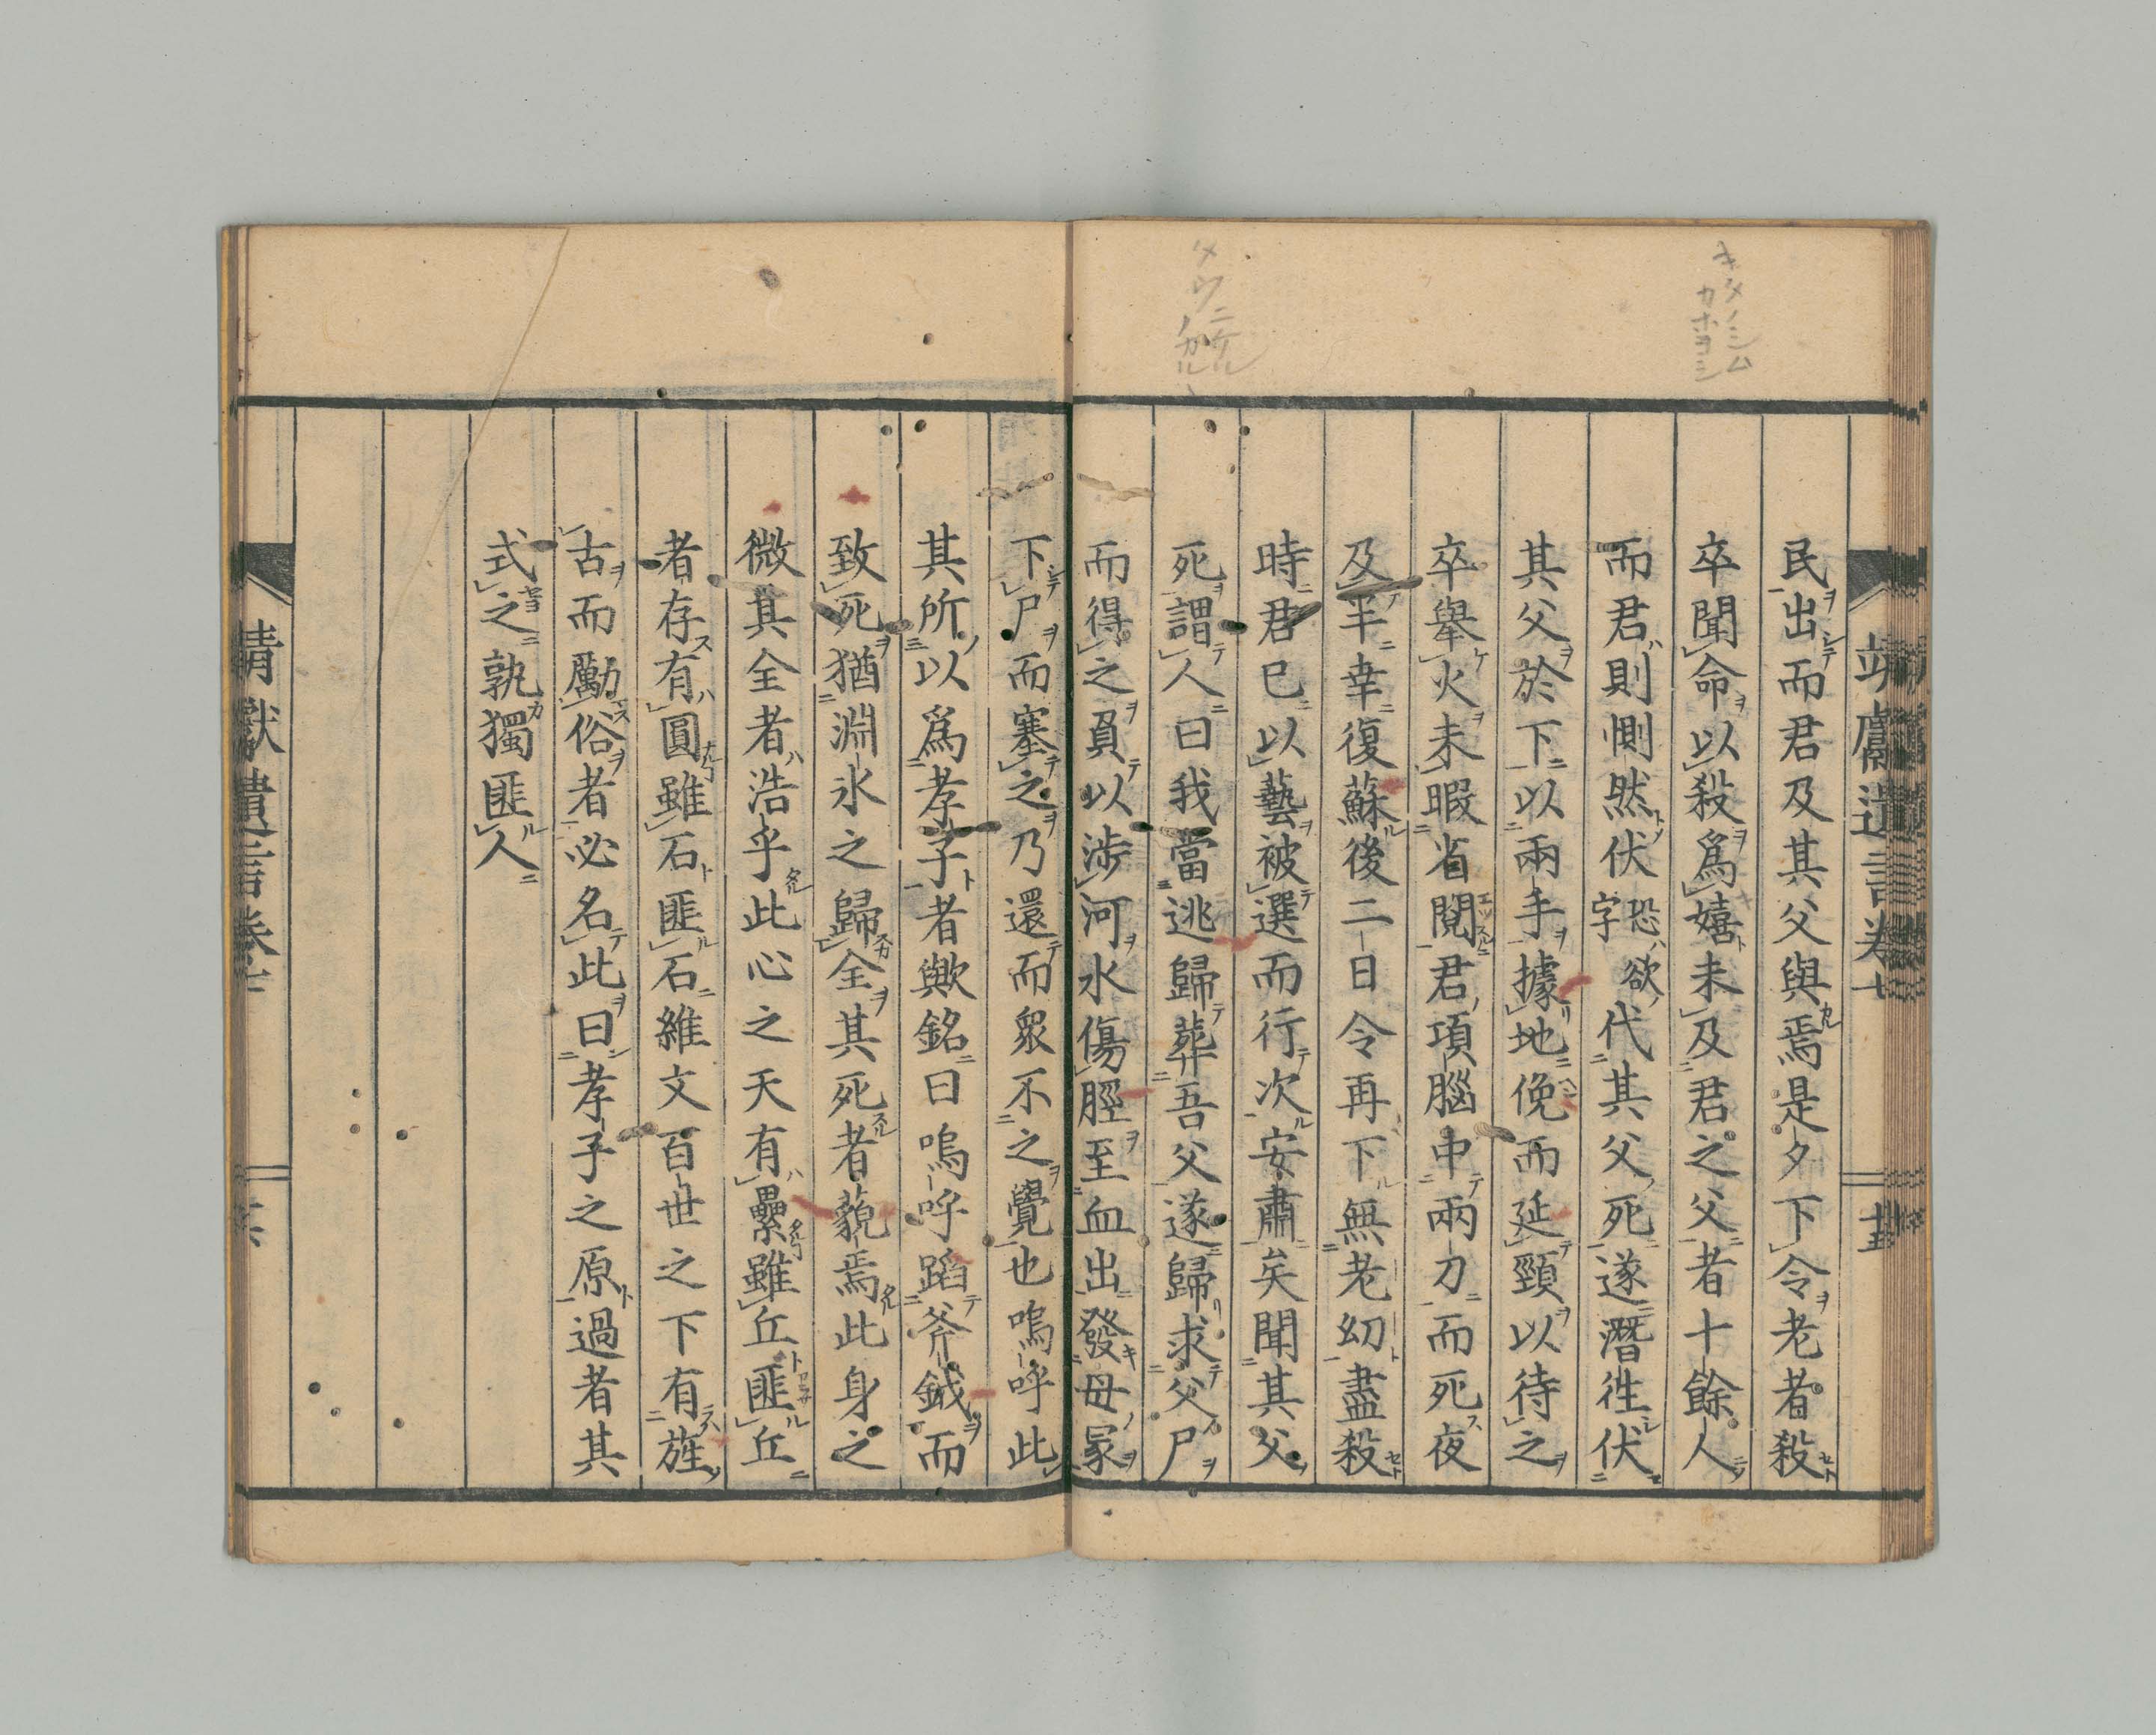 民出而君及其父與焉是夕下令老者殺
卒聞命以殺爲嬉未及君之父者十餘人
而君則惻然伏恐欲字代其父死遂潛往伏
其父於下以兩手據地俛而延頸以待之
卒擧火未暇省閲君項腦中兩刀而死夜
及半幸復蘇後二日令再下無老幼盡殺
時君已以藝被選而行次安肅矣聞其父
死謂人曰我當逃歸葬吾父遂歸求父尸
而得之負以渉河水傷脛至血出發母冢
下尸而塞之乃還而衆不之覺也嗚呼此
其所以爲孝子者歟銘曰嗚呼蹈斧鉞而
致死猶淵氷之歸全其死者藐焉此身之
微其全者浩乎此心之天有纍雖丘匪丘
者存有圓雖石匪石維文百世之下有旌
古而勵俗者必名此曰孝子之原過者其
式之孰獨匪人
靖獻遺言卷七